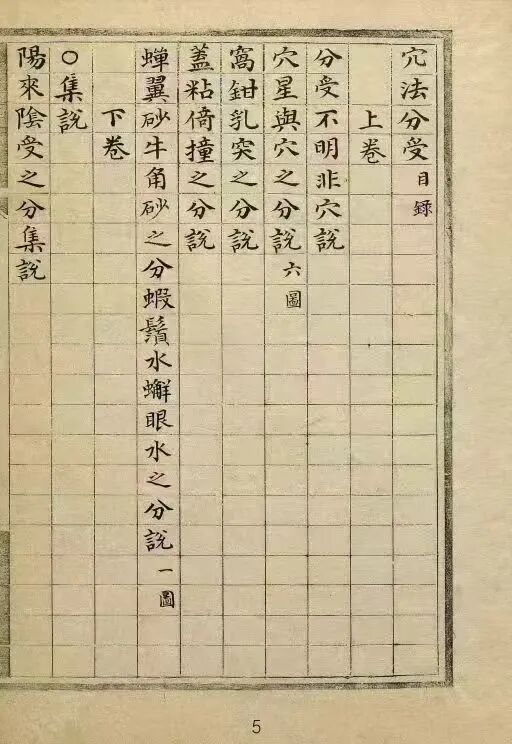 宂法分受目錄
上卷
分受不明非穴說
穴星與穴之分說六圖
窩鉗乳突之分說
蓋粘倚撞之分說
蟬翼砂牛角砂之分蝦鬚水蠏眼水之分說一圖
下卷
○集說
陽來陰受之分集說
5